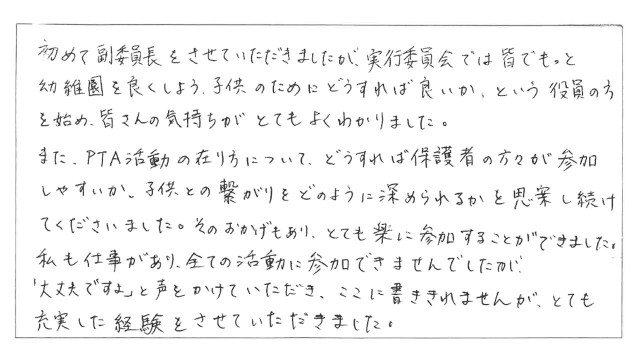 初めて副委員長をさせていただきましたが、実行委員会では皆でもっと
幼稚園を良くしよう、子供のためにどうすれば良いか、という役員の方
を始め、皆さんの気持ちがとてもよくわかりました。
また、PTA活動の在り方について、どうすれば保護者の方々が参加
しやすいか、子供との繋がりをどのように深められるかを思案し続け
てくださいました。そのおかげもあり、とても楽に参加することができました。
私も仕事があり、全ての活動に参加できませんでしたが、
「大丈夫ですよ」と声をかけていただき、ここに書ききれませんが、とても
充実した経験をさせていただきました。